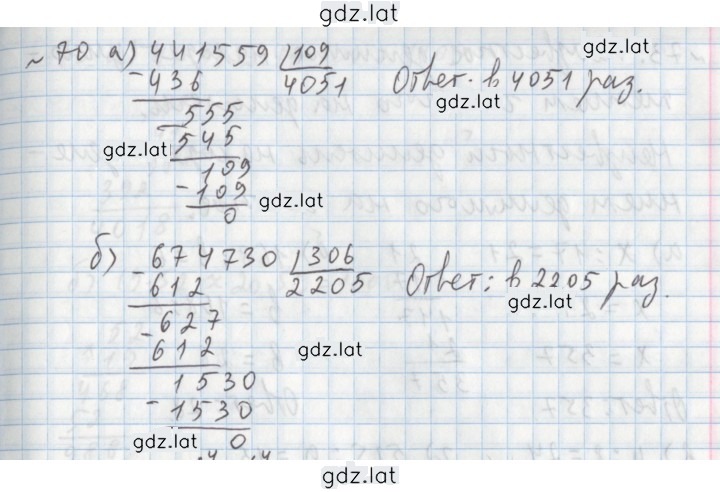 gdz.lat
№ 70 а) 441559 109
gdz.lat
-436 4051 Ответ: в 4051 раз.
gdz.lat
555
-
545
gdz.lat
109
-109
gdz.lat
0
б) -674730 306
612 2205 Ответ: в 2205 раз.
gdz.lat
-627
612
gdz.lat
1530
-1530
gdz.lat
0
gdz.lat